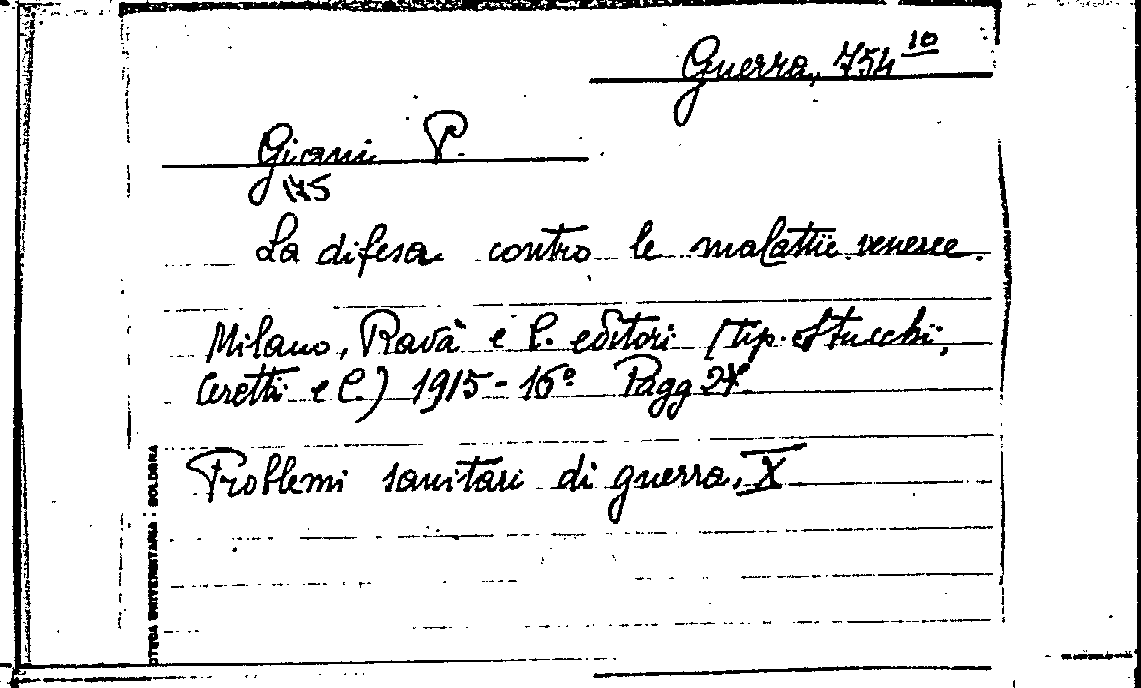 Guerra, 754 10
Giani P.
175
La difesa contro le malattie veneree.
Milano, Ravà e C. editori (tip. Stucchi,
Ceretti e C.) 1915 - 16° Pagg 27
Problemi sanitari di guerra, X
OTECA UNIVERSITARIA : BOLOGNA